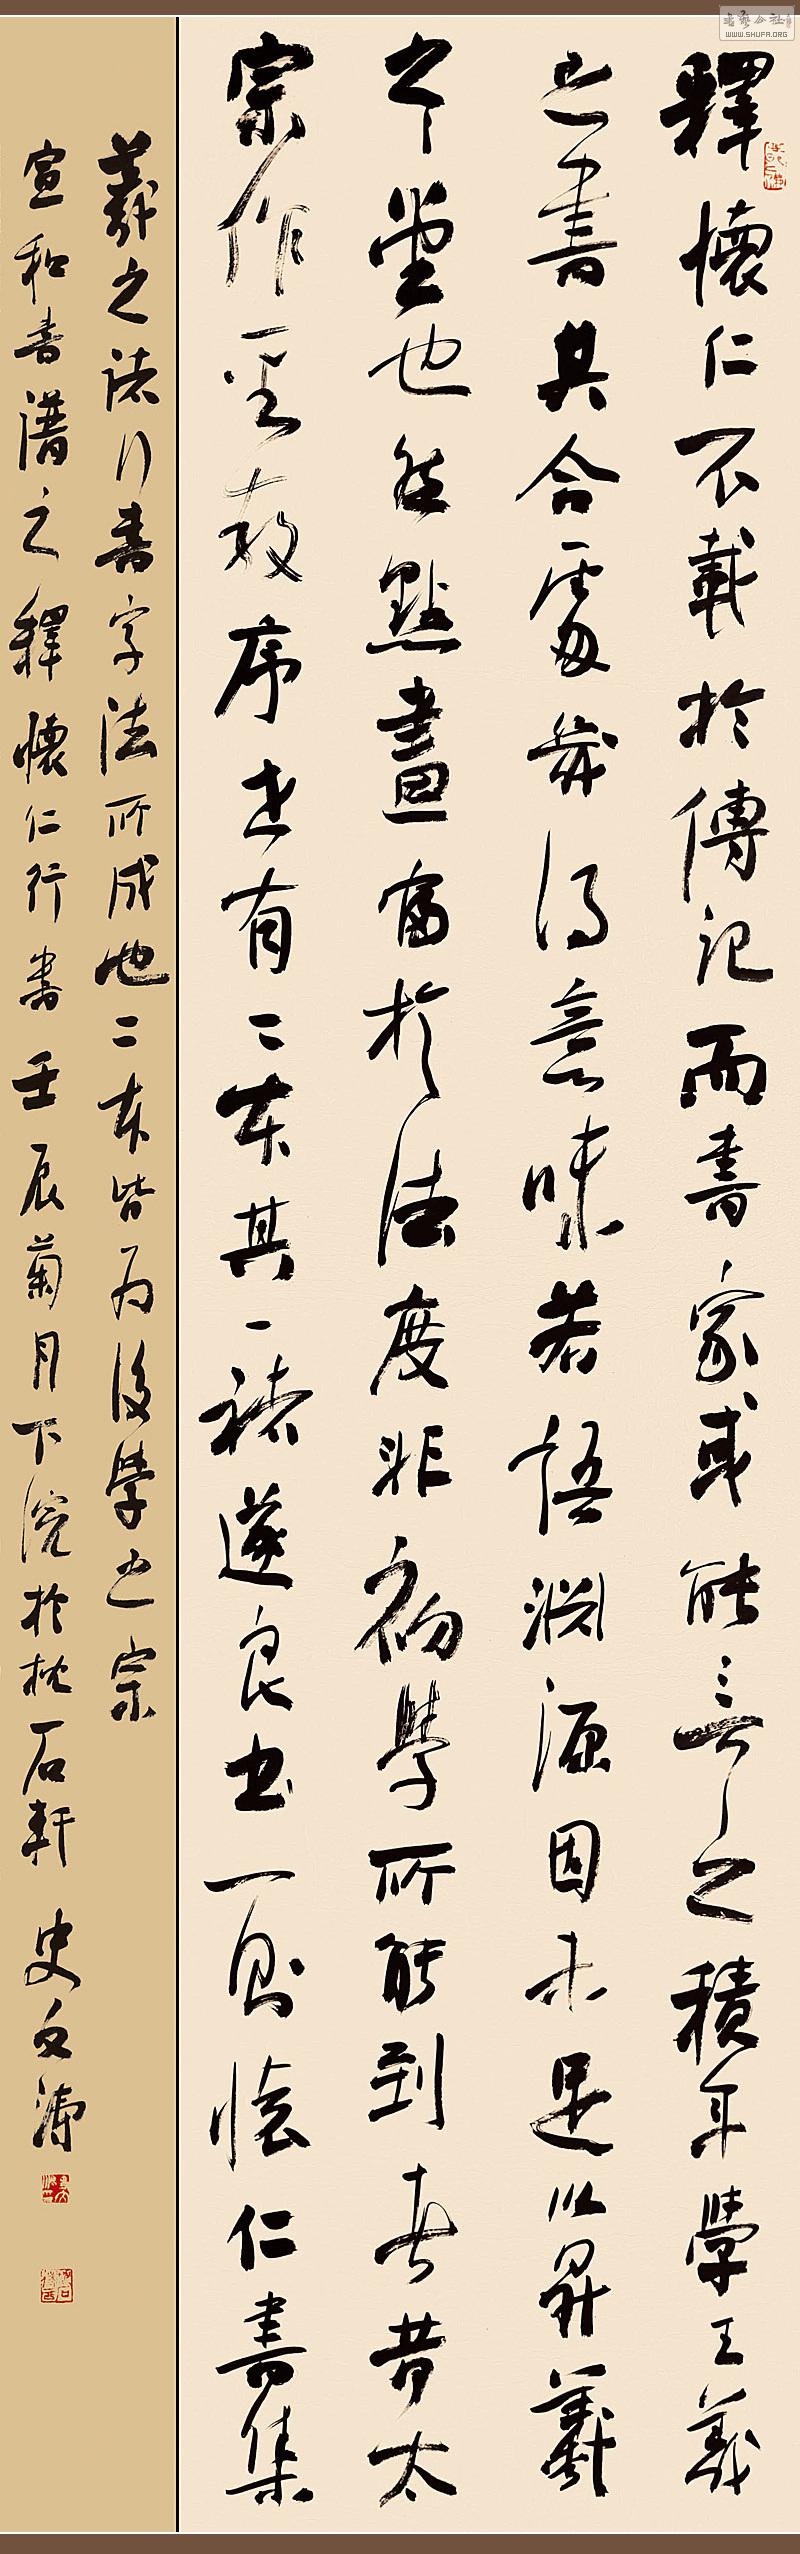 釋懷仁不載於傳記而書家或能言之積年學王羲
之書其合處幾得意味若語淵源固未足以昇羲
之堂也然點畫富於法度非初學所能到者昔太
宗作聖教序世有二本其一褚遂良書一則懷仁書集
羲之諸行書字法所成也二本皆為後學之宗
宣和書譜之釋懷仁行書壬辰菊月下浣於枕石軒史文濤
WWW.SHUFA.ORG